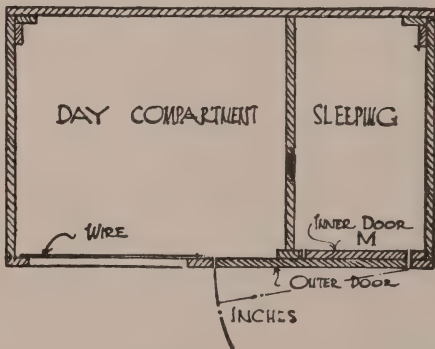 DAY COMPARTMENT SLEEPING
WIRE
INNER DOOR
M
OUTER DOOR
INCHES